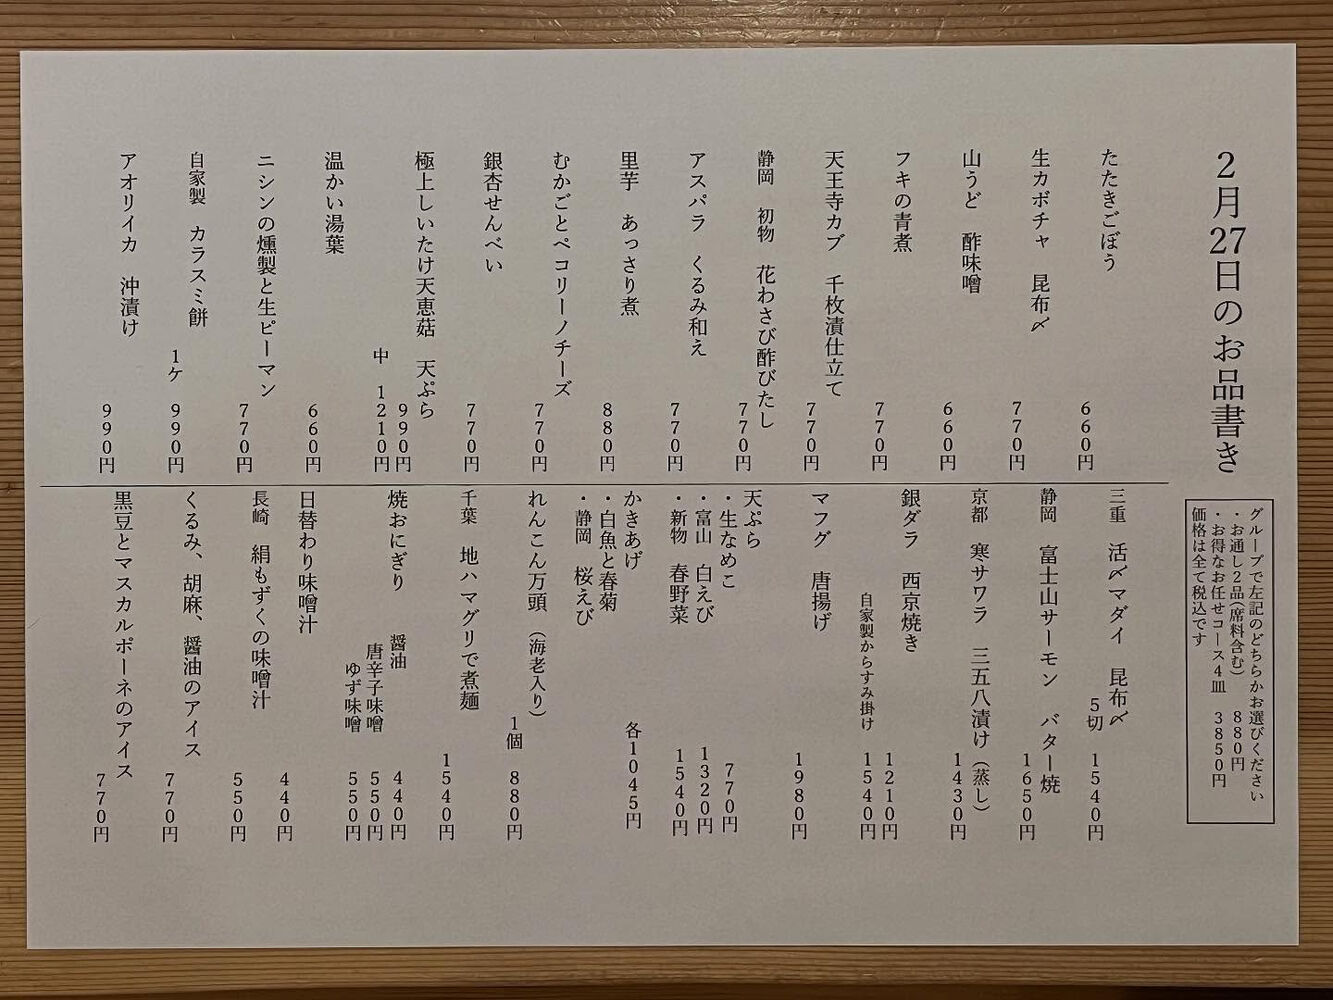 2月27日のお品書き
グループで左記のどちらかお選びください
・お通し2品(席料含む) 880円
・お得なお任せコース4皿 3850円
価格は全て税込です
たたきごぼう 660円
生カボチャ 昆布〆 770円
山うど 酢味噌 660円
フキの青煮 770円
天王寺カブ 千枚漬仕立て 770円
静岡 初物 花わさび酢びたし 770円
アスパラ くるみ和え 770円
里芋 あっさり煮 880円
むかごとペコリーノチーズ 770円
銀杏せんべい 770円
極上しいたけ天恵菇 天ぷら 990円
中 1210円
温かい湯葉 660円
ニシンの燻製と生ピーマン 770円
自家製 カラスミ餅 1ケ 990円
アオリイカ 沖漬け 990円
三重 活〆マダイ 昆布〆
5切 1540円
静岡 富士山サーモン バター焼 1650円
京都 寒サワラ 三五八漬け(蒸し) 1430円
銀ダラ 西京焼き 1210円
自家製からすみ掛け 1540円
マフグ 唐揚げ 1980円
天ぷら
・生なめこ 770円
・富山 白えび 1320円
・新物 春野菜 1540円
かきあげ 各1045円
・白魚と春菊
・静岡 桜えび
れんこん万頭(海老入り) 1個 880円
千葉 地ハマグリで煮麺 1540円
焼おにぎり 醤油 440円
唐辛子味噌 550円
ゆず味噌 550円
日替わり味噌汁 440円
長崎 絹もずくの味噌汁 550円
くるみ、胡麻、醤油のアイス 770円
黒豆とマスカルポーネのアイス 770円